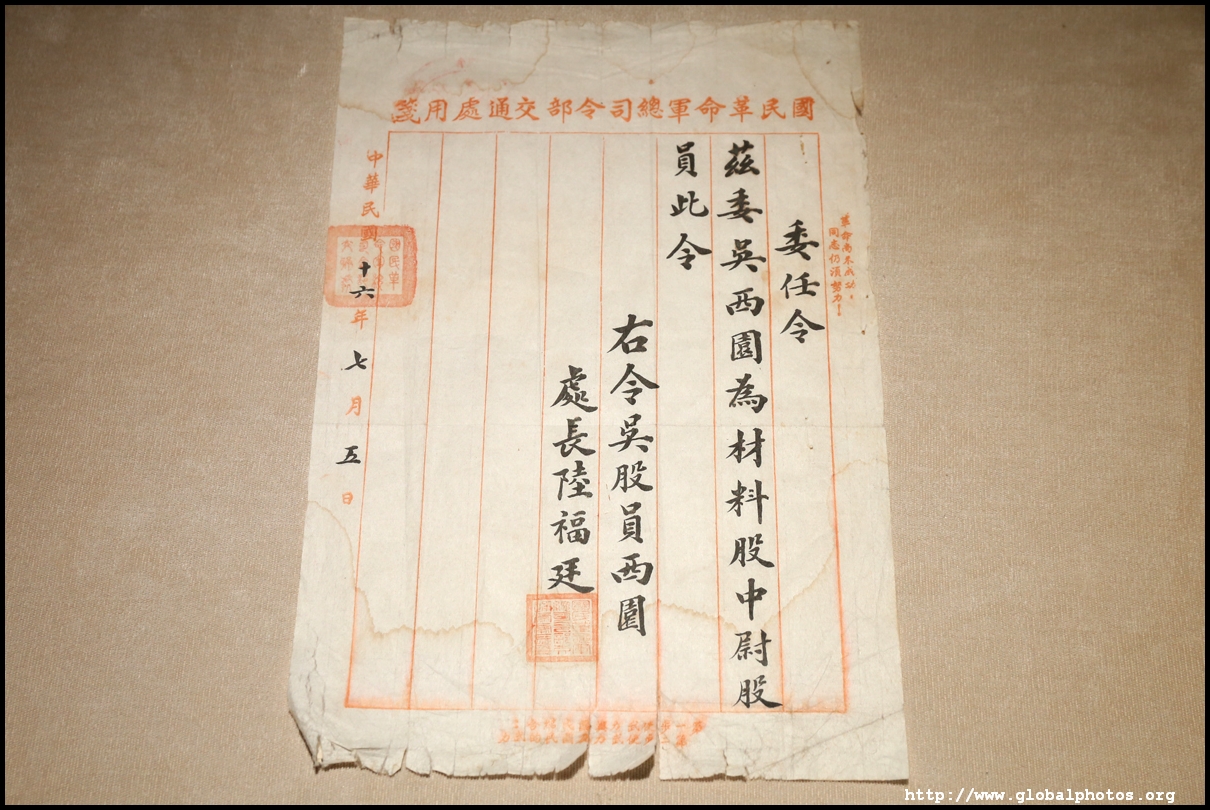 國民革命軍總司令部交通處用箋
革命尚未成功，
同志仍須努力！
委任令
茲委吳西園為材料股中尉股
員此令
右令吳股員西園
處長陸福廷
中華民國十六年七月五日
http://www.globalphotos.org